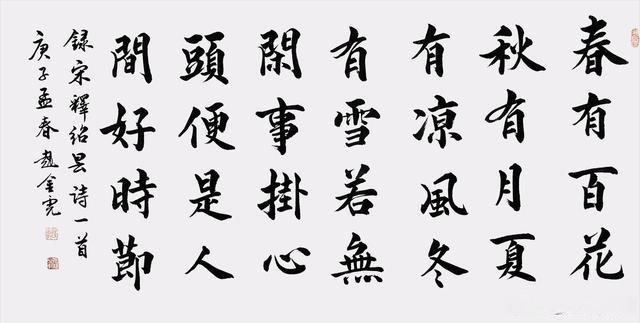 春有百花
秋有月夏
有凉風冬
有雪若無
閑事掛心
頭便是人
間好時節
録宋釋绍昙诗一首
庚子孟春趙金